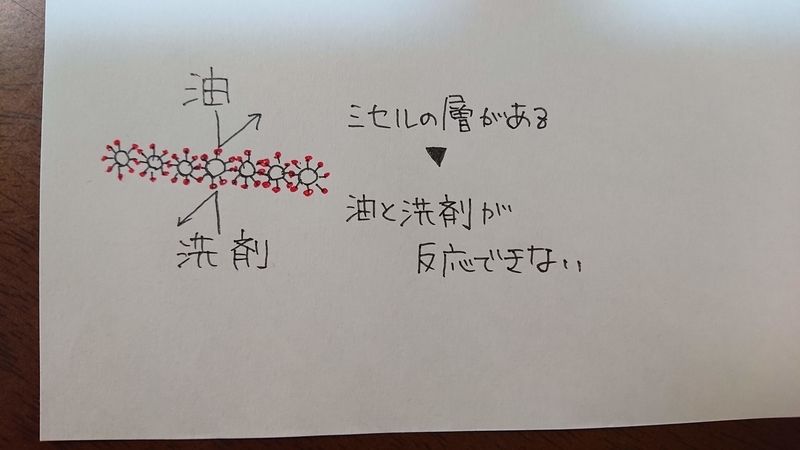 油
洗剤
ミセルの層がある
▼
油と洗剤が
反応できない